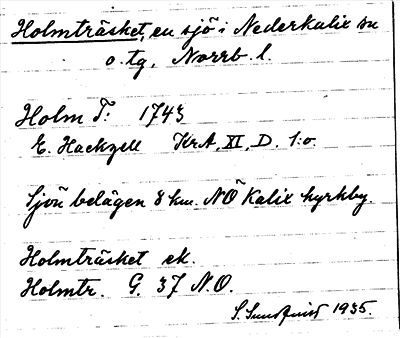 Holmträsket, en sjö i Nederkalix sn
o. tg, Norrb. l.
Holm T: 1743
E. Hackzell KrA, XI, D. 1:o
Sjön belägen 8 km. NÖ Kalix kyrkby.
Holmträsket ek.
Holmtr. G. 37 N.O.
S. Sundqvist 1935.